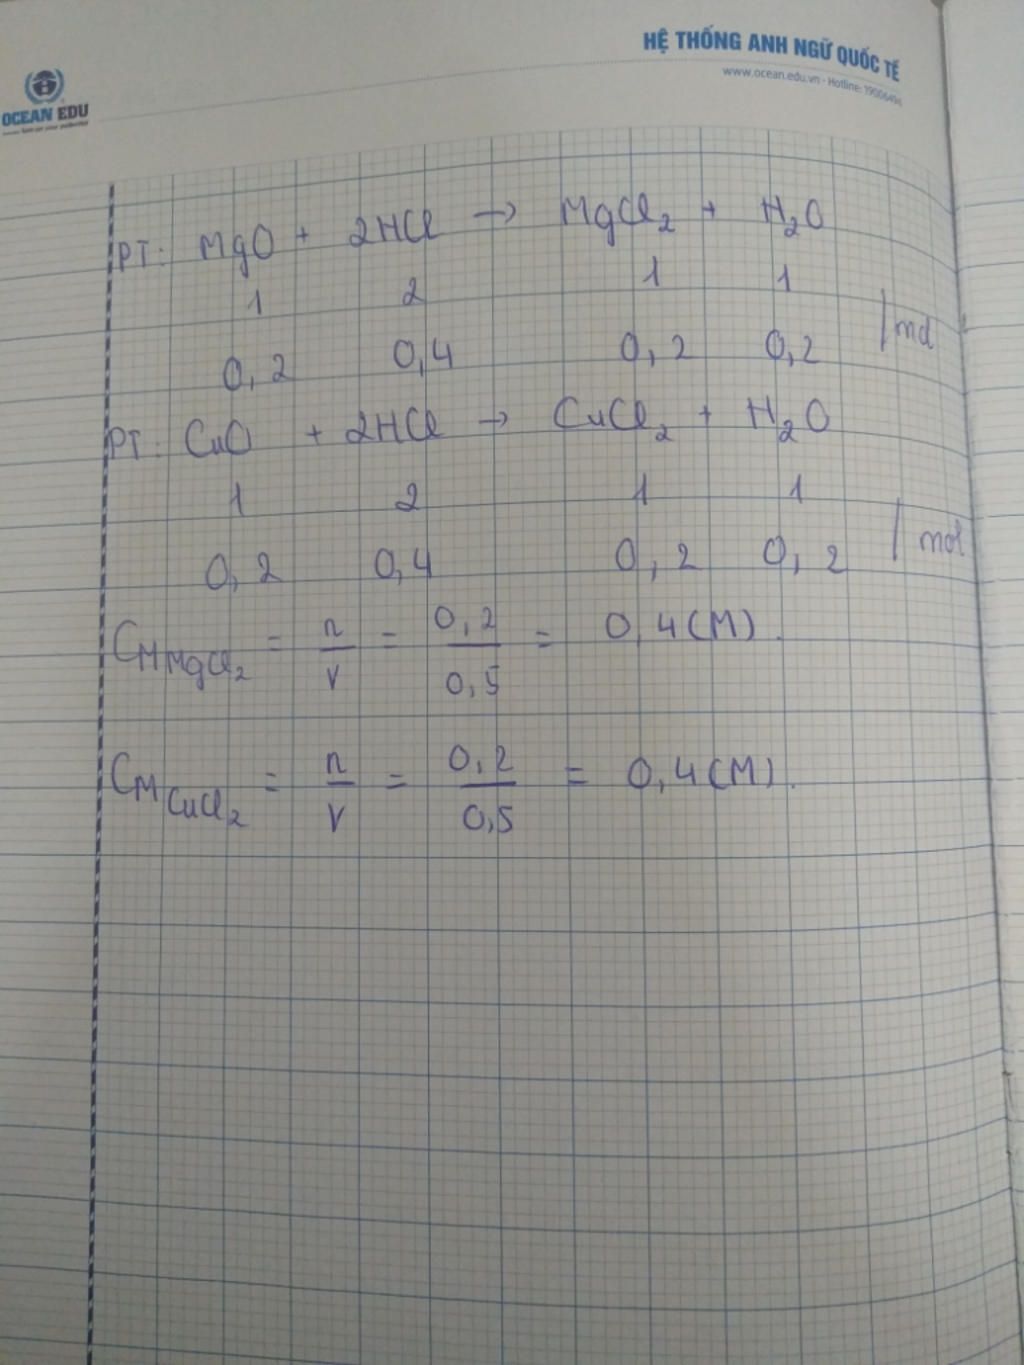 HỆ THỐNG ANH NGỮ QUỐC TẾ
www.ocean.edu.vn - Hotline: 1900
OCEAN EDU
PT: MgO + 2HCl → MgCl₂ + H₂O
1 2 1 1
0,2 0,4 0,2 0,2 / mol
PT: CuO + 2HCl → CuCl₂ + H₂O
1 2 1 1
0,2 0,4 0,2 0,2 / mol
CM MgCl₂ = n/V = 0,2/0,5 = 0,4 (M).
CM CuCl₂ = n/V = 0,2/0,5 = 0,4 (M).